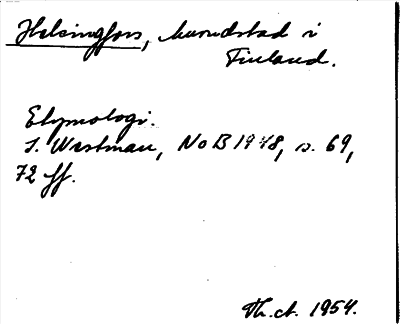 Helsingfors, huvudstad i
Finland.
Etymologi.
I. Westman, NoB 1948, s. 69,
72 ff.
Th. ct. 1954.